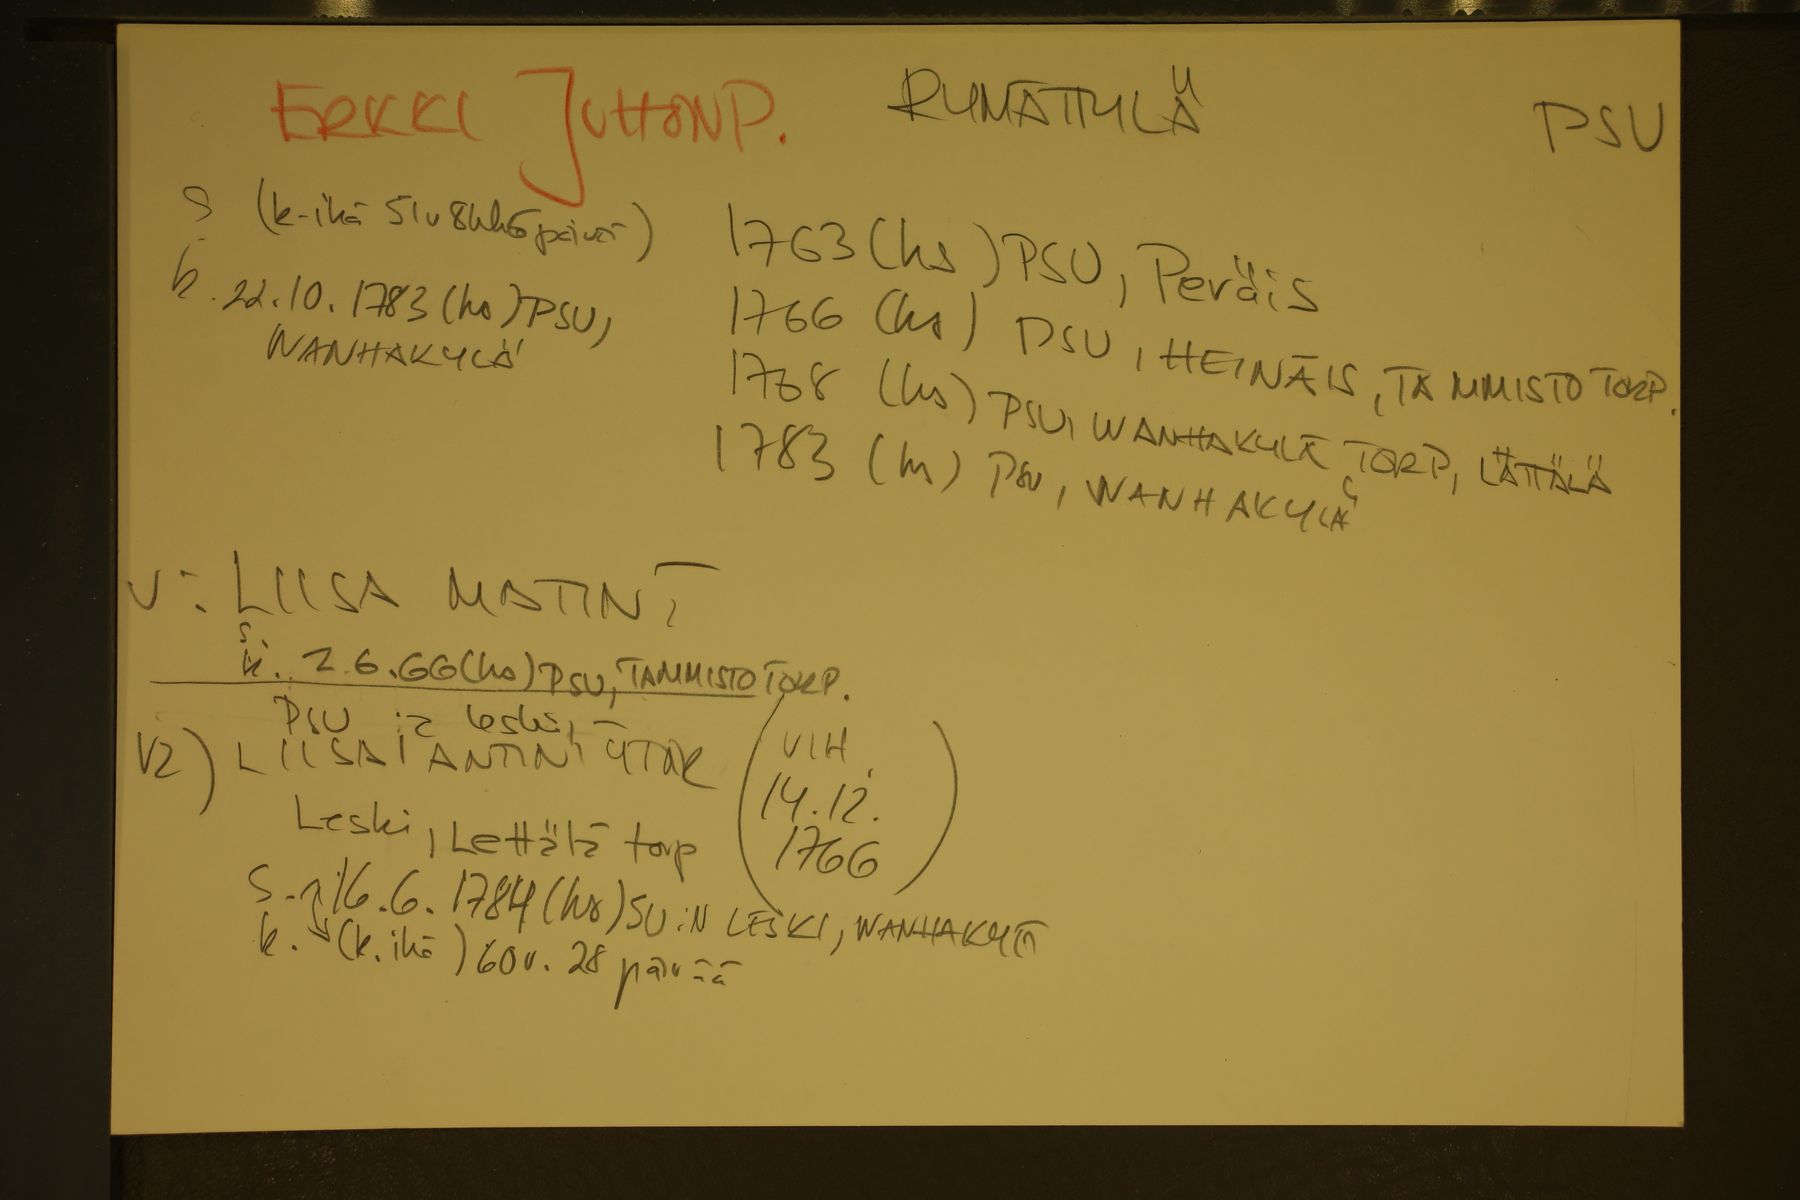 ERKKI JUHONP. RYMÄTTYLÄ PSU
S (k-ikä 51v 8kk 6 päivää)
k. 22.10.1783 (hs) PSU,
WANHAKYLÄ
1763 (hs) PSU, Peräis
1766 (hs) PSU, HEINÄIS, TAMMISTO TORP.
1768 (hs) PSU, WANHAKYLÄ TORP, LÄTTÄLÄ
1783 (hs) PSU, WANHAKYLÄ
V: LIISA MATINT
k. 2.6.66 (hs) PSU, TAMMISTO TORP.
PSU :n leski,
V2) LIISA ANTINTYTÄR
(VIH.
14.12.
1766)
Leski, Lettälä torp
S. 16.6.1784 (hs) SU:N LESKI, WANHAKYLÄ
k. (k. ikä) 60v. 28 päivää